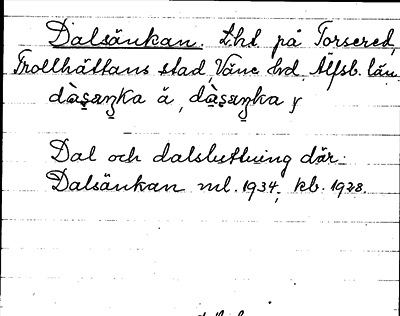 Dalsänkan. Lht på Torsered,
Trollhättans stad, Väne hd, Älfsb. län.
dàsaŋka ä, dàsaŋka y
Dal och dalsluttning där.
Dalsänkan ml. 1934, kb. 1928.